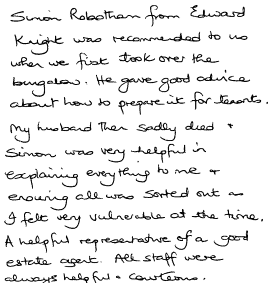 Simon Robotham from Edward
Knight was recommended to us
when we first took over the
bungalow. He gave good advice
about how to prepare it for tenants.
My husband then sadly died +
Simon was very helpful in
explaining everything to me +
ensuring all was sorted out as
I felt very vulnerable at the time.
A helpful representative of a good
estate agent. All staff were
always helpful + courteous.